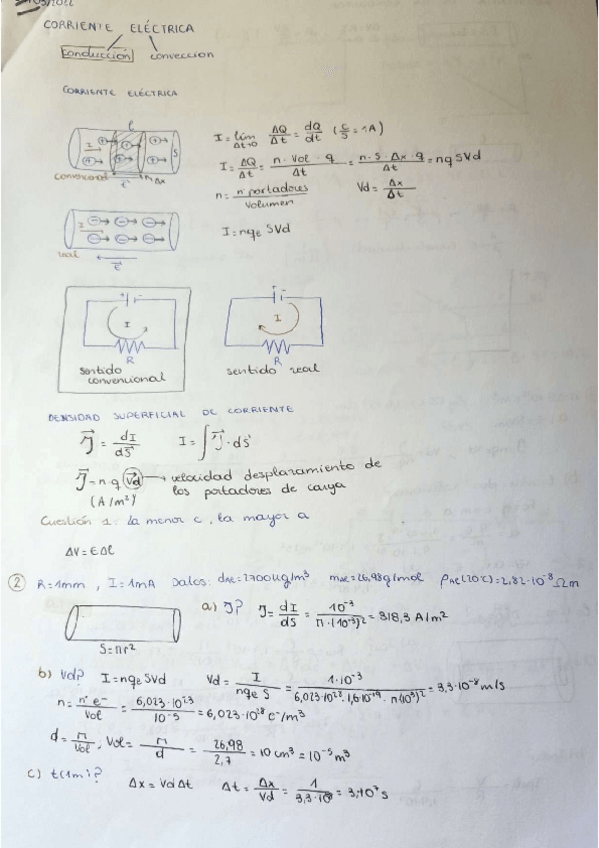 /05/2022
CORRIENTE ELÉCTRICA
conducción convección
CORRIENTE ELÉCTRICA
l
I S
convencional E Δx
I = lim Δt→0 ΔQ/Δt = dQ/dt (C/S = 1A)
I = ΔQ/Δt = n · Vol · q/Δt = n · S · Δx · q/Δt = nqSVd
n = nº portadores/volumen Vd = Δx/Δt
I
real E
I = nqe SVd
+ - + -
I I
R R
sentido convencional sentido real
DENSIDAD SUPERFICIAL DE CORRIENTE
J = dI/dS I = ∫ J · ds
J = n · q (Vd) → velocidad desplazamiento de
(A/m²) los portadores de carga
Cuestión 1: la menor c, la mayor a
ΔV = EΔl
2 R = 1mm, I = 1mA Datos: dAl = 2700 kg/m³ mAl = 26,98 g/mol ρAl(20ºC) = 2,82·10⁻⁸ Ωm
S = πr²
a) J? J = dI/dS = 10⁻³/π·(10⁻³)² = 318,3 A/m²
b) Vd? I = nqe SVd Vd = I/nqe S = 1·10⁻³/6,023·10²⁸·1,6·10⁻¹⁹·π(10⁻³)² = 3,3·10⁻⁸ m/s
n = nº e⁻/Vol = 6,023·10²³/10⁻⁵ = 6,023·10²⁸ e⁻/m³
d = m/Vol; Vol = m/d = 26,98/2,7 = 10 cm³ = 10⁻⁵ m³
c) t(1m)? Δx = VdΔt Δt = Δx/Vd = 1/3,3·10⁻⁸ = 3·10⁷ s